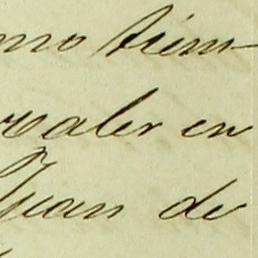 mo tiem-
valer en
Juan de